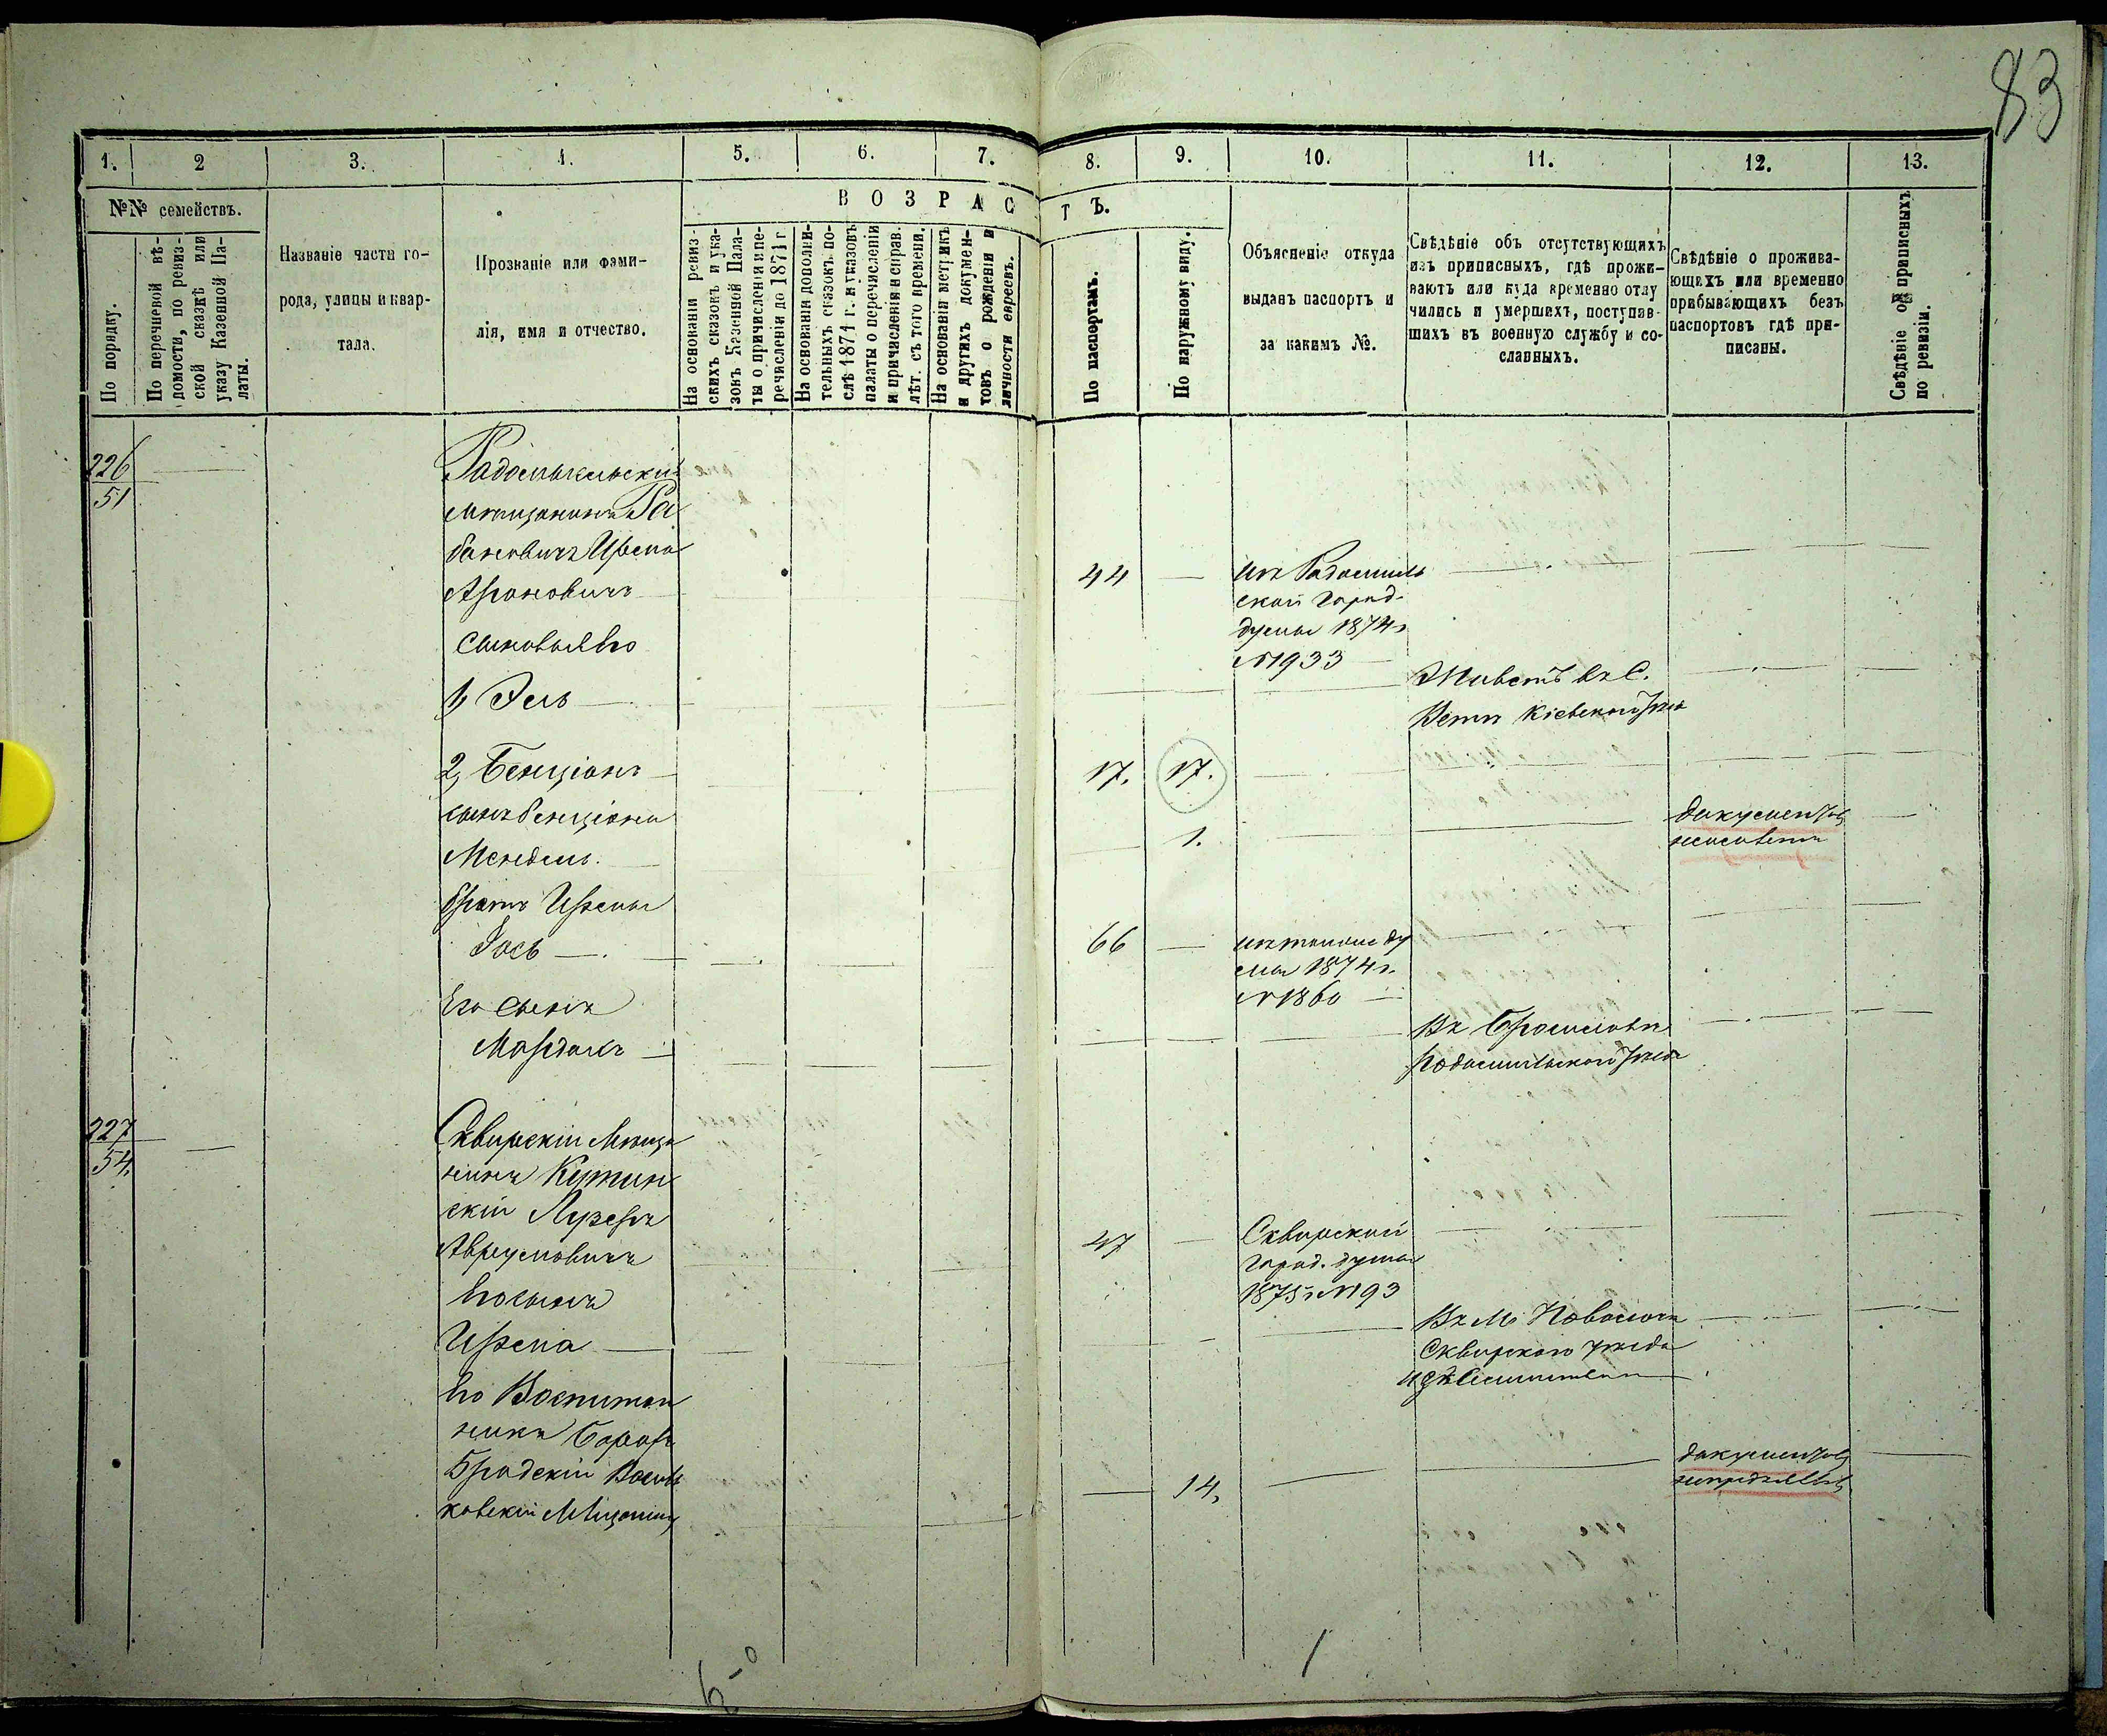 83
1. 2 3. 4. 5. 6. 7. 8. 9. 10. 11. 12. 13.
№№ семействъ.
По порядку.
По перечневой вѣ-
домости, по ревиз-
ской сказкѣ или
указу Казенной Па-
латы.
Названіе части го-
рода, улицы и квар-
тала.
Прозваніе или фами-
лія, имя и отчество.
ВОЗРАСТЪ.
На основаніи ревиз-
скихъ сказокъ и ука-
зокъ Казенной Пала-
ты о причисленіи и пе-
речисленіи до 1871 г
На основаніи дополни-
тельныхъ сказокъ по-
слѣ 1871 г. и указовъ
палаты о перечисленіи
и причисленіи и справ.
лѣт. съ того времени.
На основаніи метрикъ
и другихъ докумен-
товъ о рожденіи и
личности евреевъ.
По паспортамъ.
По наружному виду.
Объясненіе откуда
выданъ паспортъ и
за какимъ №.
Свѣдѣніе объ отсутствующихъ
изъ приписныхъ, гдѣ прожи-
ваютъ или куда временно отлу
чились и умершихъ, поступив-
шихъ въ военную службу и со-
сланныхъ.
Свѣдѣніе о прожива-
ющихъ или временно
прибывающихъ безъ
паспортовъ гдѣ при-
писаны.
Свѣдѣніе о приписныхъ
по ревизіи.
226
51
Радомысльскій
мѣщанинъ Ра
бановичъ Ирспа
Ароновичъ
44
изъ Радомысль
ской Город.
думы 1874 г
№ 1933
сыновья Его
1, Эль
Живетъ въ С.
Кіевского
2, Бенціонъ
17. 17.
сынъ Бенціона
Мендель.
1.
документовъ
братъ
Іось
66
изъ той же ду
мы 1874 г.
№ 1860
Его сынъ
Мардахъ
Въ Брусиловѣ
Радомысльского уѣзда
227
54.
Сквирскій Мѣща
нинъ Кутин
скій Лузеръ
Аврумовичъ
47
Сквирской
город. думы
1875 г № 93
Его сынъ
Въ М.
Сквирского уѣзда
Его Воспитан
никъ Борохъ
Бродскій Василь
ковскій Мѣщанинъ
14.
документовъ